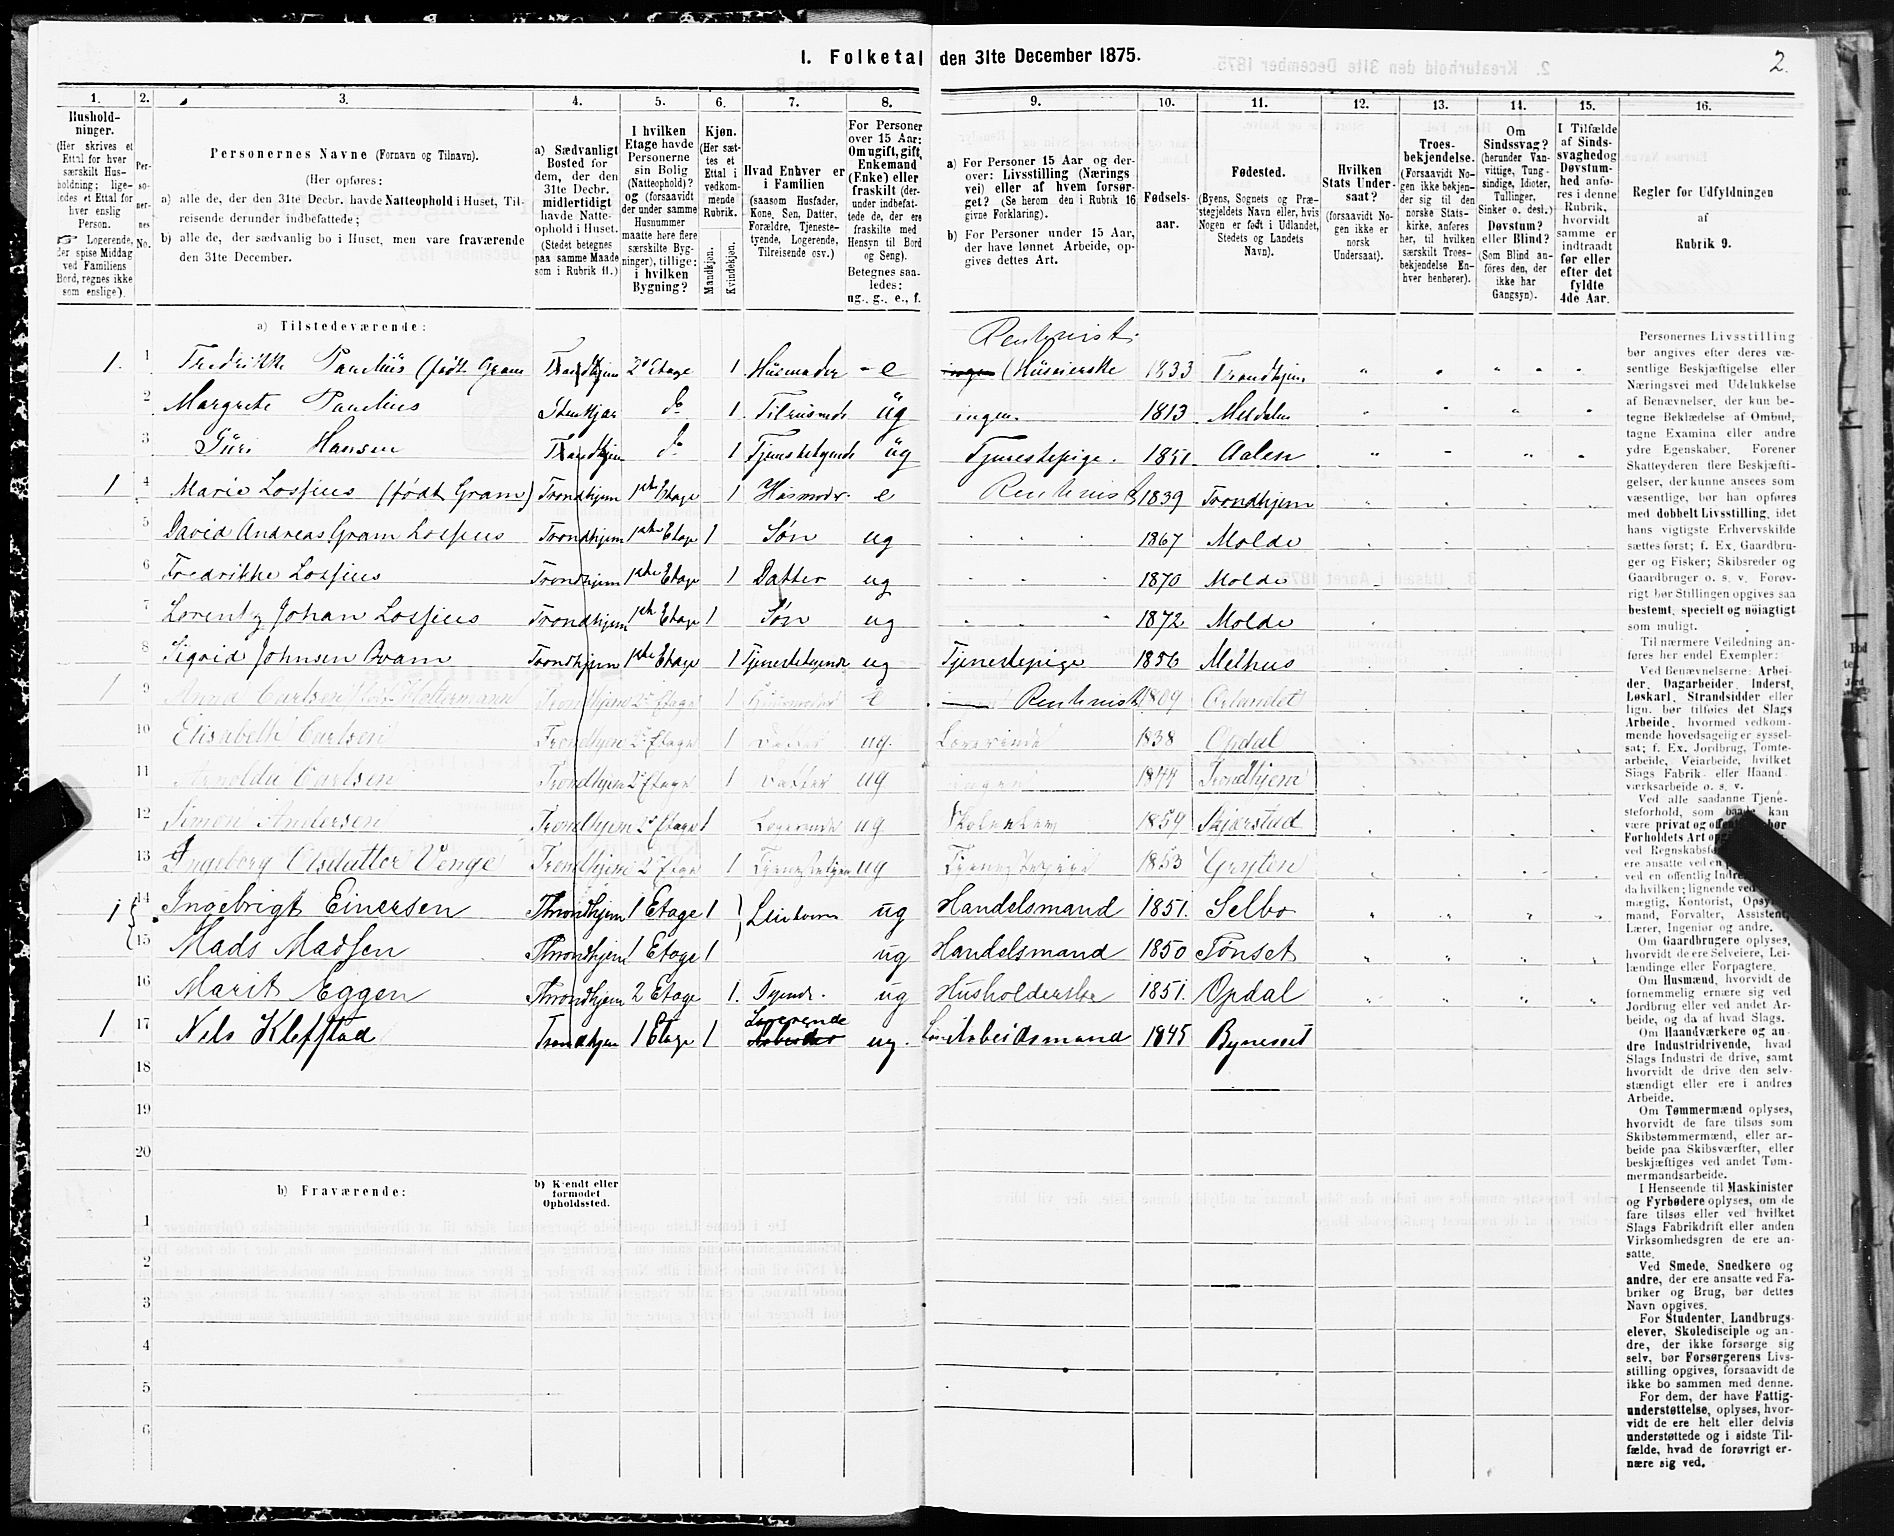 I. Folketal den 31te December 1875.
2.
1. 2. 3. 4. 5. 6. 7. 8. 9. 10. 11. 12. 13. 14. 15. 16.
Hushold-
ninger.
(Her skrives et
Ettal for hver
særskilt Hus-
holdning; lige-
ledes et Ettal for
hver enslig
Person.
☞ Logerende,
der spise Middag
ved Familiens
Bord, regnes ikke
som enslige).
Per-
so-
ner-
nes
No.
Personernes Navne (Fornavn og Tilnavn).
(Her opføres:
a) alle de, der den 31te Decbr. havde Natteophold i Huset, Til-
reisende derunder indbefattede;
b) alle de, der sædvanlig bo i Huset, men vare fraværende
den 31te December.
a) Sædvanligt
Bosted for
dem, der den
31te Decbr.
midlertidigt
havde Natte-
ophold i Huset.
(Stedet betegnes
paa samme Maade
som i Rubrik 11.)
I hvilken
Etage havde
Personerne
sin Bolig
(Natteophold)?
og (forsaavidt
der under samme
Husnummer
maatte høre flere
særskilte Byg-
ninger), tillige:
i hvilken
Bygning?
Kjøn.
(Her sæt-
tes et
Ettal i
vedkom-
mende
Rubrik.
Mandkjøn.
Kvindekjøn.
Hvad Enhver er
i Familien
(saasom Husfader,
Kone, Søn, Datter,
Forældre, Tjeneste-
tyende, Logerende,
Tilreisende osv.)
For Personer
over 15 Aar:
Om ugift, gift,
Enkemand
(Enke) eller
fraskilt (der-
under indbefat-
tede de, der ere
fraskilte med
Hensyn til Bord
og Seng).
Betegnes saa-
ledes:
ug., g., e., f.
a) For Personer 15 Aar og der-
over: Livsstilling (Nærings
vei) eller af hvem forsør-
get? (Se herom den i Rubrik 16
givne Forklaring).
b) For Personer under 15 Aar,
der have lønnet Arbeide, op-
gives dettes Art.
Fødsels-
aar.
Fødested.
(Byens, Sognets og Præ-
stegjeldets Navn eller, hvis
Nogen er født i Udlandet,
Stedets og Landets
Navn).
Hvilken
Stats Under-
saat?
(forsaavidt No-
gen ikke er
norsk
Undersaat).
Troes-
bekjendelse.
(Forsaavidt No-
gen ikke bekjen-
der sig til den
norske Stats-
kirke, anføres
her, til hvilken
særskilt Troes-
bekjendelse En-
hver henhører).
Om
Sindssvag?
(herunder Van-
vittige, Tung-
sindige, Idioter,
Tullinger,
Sinker o. desl.)
Døvstum?
eller Blind?
(Som Blind an-
føres den, der
ikke har
Gangsyn).
I Tilfælde
af Sinds-
svaghed og
Døvstum-
hed anfø-
res i denne
Rubrik,
hvorvidt
samme er
indtraadt
før eller
efter det
fyldte
4de Aar.
Regler for Udfyldningen
af
Rubrik 9.
a) Tilstedeværende:
1. 1 Fredrikke Paulius (født Gram Trondhjem 2d Etage 1 Husmoder e Rentenist. ingen (Huseierske 1833 Trondhjem
2 Margrete Paulius Stenkjær do 1 Tilreisende ug ingen. 1813 Meldalen
3 Guri Hansen Trondhjem do 1 Tjenestetyende ug Tjenestepige. 1851 Aalen
1 4 Marie Lossius (født Gram) Trondhjem 1ste Etage 1 Husmoder e Rentenist 1839 Trondhjem
5 David Andreas Gram Lossius Trondhjem 1ste Etage 1 Søn ug 1867 Molde
6 Fredrikke Lossius Trondhjem 1ste Etage 1 Datter ug 1870 Molde
7 Lorentz Johan Lossius Trondhjem 1ste Etage 1 Søn ug 1872 Molde
8 Sigrid Johnsen Qvam Trondhjem 1ste Etage 1 Tjenestetyende ug Tjenestepige 1856 Melhus
1 9 Anna Carlsen født Holtermann Trondhjem 2d Etage 1 Husmoder e Rentenist 1809 Ørlandet
10 Elisabeth Carlsen Trondhjem 2d Etage 1 Datter ug. Lærerinde 1838 Opdal
11 Arnolda Carlsen Trondhjem 2d Etage 1 Datter ug ingen 1844 Trondhjem
12 Simon Andersen Trondhjem 2d Etage 1 Logerende ug 1859 Skjerstad
13 Ingeborg Olsdatter Venge Trondhjem 2d Etage 1 Tjenestetyen ug Tjenestepige 1853 Gryten
1 14 Ingebrigt Einersen Throndhjem 1 Etage 1 ug Handelsmand 1851. Selbo
15 Mads Madsen Throndhjem 1 Etage 1 ug Handelsmand 1850 Tønset
16 Marit Eggen Throndhjem 2 Etage 1. Tyende. ug Husholderske 1851. Opdal
1 17 Nels Klefstad Trondhjem 1 Etage 1 Logerende Arbeider ug. Arbeidsmand 1845 Bynesset
18
19
20
b) Fraværende:
b) Kjendt eller
formodet
Opholdssted.
1
2
3
4
5
6
Personernes Livsstilling
bør angives efter deres væ-
sentlige Beskjæftigelse eller
Næringsvei med Udelukkelse
af Benævnelser, der kun be-
tegne Beklædelse af Ombud,
tagne Examina eller andre
ydre Egenskaber. Forener
Skatteyderen flere Beskjæfti-
gelser, der kunne ansees som
væsentlige, bør han opføres
med dobbelt Livsstilling, idet
hans vigtigste Erhvervskilde
sættes først; f. Ex. Gaardbru-
ger og Fisker; Skibsreder og
Gaardbruger o. s. v. Forøv-
rigt bør Stillingen opgives saa
bestemt, specielt og nøiagtigt
som muligt.
Til nærmere Veiledning an-
føres her endel Exempler:
Ved Benævnelserne: Arbei-
der, Dagarbeider, Inderst,
Løskarl, Strandsidder eller
lign. bør tilføies det Slags
Arbeide, hvormed vedkom-
mende hovedsagelig er syssel-
sat; f. Ex. Jordbrug, Tomte-
arbeide, Veiarbeide, hvilket
Slags Fabrik- eller Haand-
værksarbeide o. s. v.
Ved alle saadanne Tjene-
steforhold, som baade kan
være privat og offentligt, bør
Forholdets Art
ved
ere ansatte ved en
ved en offentlig
da hvilken; lignende ved
mægtig, Kontorist,
mand, Forvalter, Assistent,
Lærer, Ingeniør og andre.
Om Gaardbrugere oplyses,
hvorvidt de ere Selveiere, Lei-
lændinge eller Forpagtere.
Om Husmænd, hvorvidt de
fornemmelig ernære sig ved
Jordbrug eller ved andet Ar-
beide, og da af hvad Slags.
Om Haandværkere og an-
dre Industridrivende, hvad
Slags Industri de drive, samt
hvorvidt de drive den selv-
stændigt eller ere i andres
Arbeide.
Om Tømmermænd oplyses,
hvorvidt de fare tilsøs som
Skibstømmermænd, eller ar-
beide paa Skibsværfter, eller
beskjæftiges ved andet Tøm-
mermandsarbeide.
I Henseende til Maskinister
og Fyrbødere oplyses, om de
fare tilsøs eller ved hvilket
Slags Fabrikdrift eller anden
Virksomhedsgren de ere an-
satte.
Ved Smede, Snedkere og
andre, der ere ansatte ved Fa-
briker og Brug, bør dettes
Navn opgives.
For Studenter, Landbrugs-
elever, Skoledisciple og an-
dre, der ikke forsørge sig
selv, bør Forsørgerens Livs-
stilling opgives, forsaavidt de
ikke bo sammen med denne.
For dem, der have Fattig-
understøttelse, oplyses, hvor-
vidt de ere helt eller delvis
understøttede og i sidste Til-
fælde, hvad de forøvrigt er-
nære sig ved.